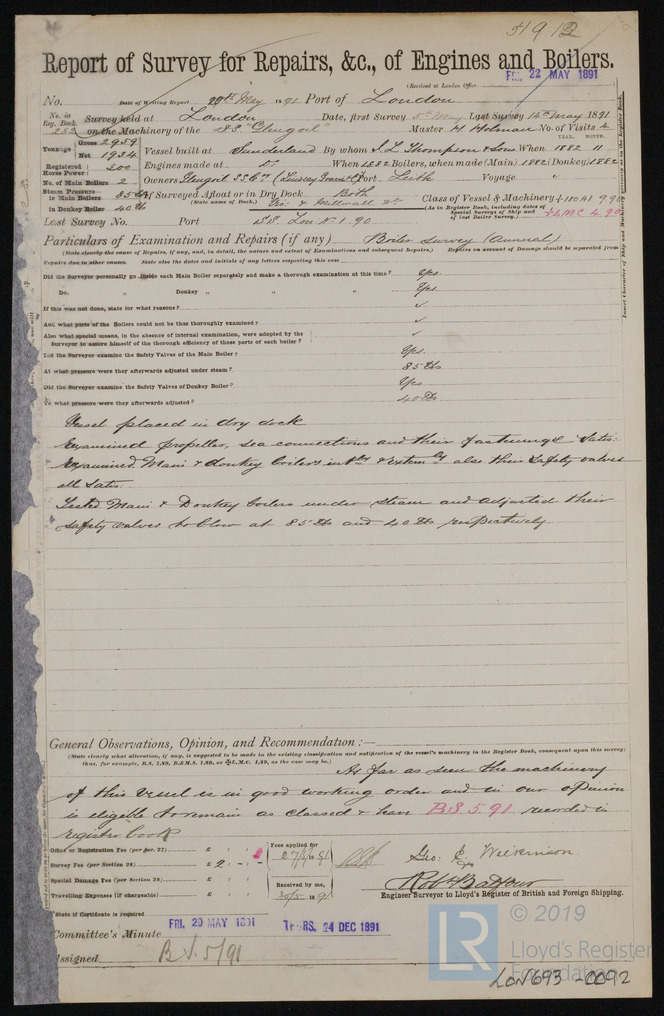 51912
Report of Survey for Repairs, &c., of Engines and Boilers.
(Received at London Office
FRI. 22 MAY 1891
No. Date of Writing Report 20th May 1891 Port of London
No. in Reg. Book. Survey held at London Date, first Survey 5th May Last Survey 14th May 1891
252 on the Machinery of the SS "Glengoil" Master H Holman No. of Visits 4
Tonnage Gross 2959 Net 1934
YEAR. MONTH.
Vessel built at Sunderland By whom J. L. Thompson & Sons When 1882 11
Registered Horse Power 200
Engines made at Do When 1882 Boilers, when made (Main) 1882 (Donkey) 1882
No. of Main Boilers 2
Owners Glengoil SS Co Port Leith Voyage "
Steam Pressure in Main Boilers 85 lbs
If Surveyed Afloat or in Dry Dock Both
(State name of Dock.)
Class of Vessel & Machinery +100A1 9,90
in Donkey Boiler 40 lb
(As in Register Book, including dates of Special Surveys of Ship and of last Boiler Survey.)
+LMC 4.90
Last Survey No. Port Lon
Particulars of Examination and Repairs (if any) Boiler Survey (Annual)
(State clearly the cause of Repairs, if any, and, in detail, the nature and extent of Examinations and subsequent Repairs.) Repairs on account of Damage should be separated from
Repairs due to other causes. State also the dates and initials of any letters respecting this case
Did the Surveyor personally go inside each Main Boiler separately and make a thorough examination at this time? Yes.
Do. " Donkey " " " Yes.
If this was not done, state for what reasons? ✓
And what parts of the Boilers could not be thus thoroughly examined? ✓
Also what special means, in the absence of internal examination, were adopted by the
Surveyor to assure himself of the thorough efficiency of those parts of each boiler? ✓
Did the Surveyor examine the Safety Valves of the Main Boiler? Yes.
At what pressure were they afterwards adjusted under steam? 85 lbs
Did the Surveyor examine the Safety Valves of Donkey Boiler? Yes
To what pressure were they afterwards adjusted? 40 lbs
Vessel placed in dry dock
Examined propeller, sea connections and their fastenings Satis:
Examined Main & donkey boilers intly & externly also their safety valves
all satis:
Tested Main & Donkey boilers under steam and adjusted their
safety valves to blow at 85 lbs and 40 lbs respectively.
General Observations, Opinion, and Recommendation:—
(State clearly what alteration, if any, is suggested to be made in the existing classification and notification of the vessel's machinery in the Register Book, consequent upon this survey;
thus, for example, B.S. 1,89, B.&M.S. 1,89, or ✠L.M.C. 1,89, as the case may be.)
As far as seen the machinery
of this vessel is in good working order and in our opinion
is eligible to remain as classed & have B.S. 5.91 recorded in
register book
Office or Registration Fee (per Sec. 27) £ : :
Fees applied for
27/5/1891
Survey Fee (per Section 28) £ 2 : - : -
Geo: E. Wilkinson
Special Damage Fee (per Section 28) £ : :
Received by me,
Robt Balfour
Travelling Expenses (if chargeable) £ : :
30/5 1891
Engineer Surveyor to Lloyd's Register of British and Foreign Shipping.
State if Certificate is required
Committee's Minute FRI. 29 MAY 1891 THURS. 24 DEC 1891
Assigned B.S. 5/91
© 2019
LR
Lloyd's Register
Foundation
LON693-0092